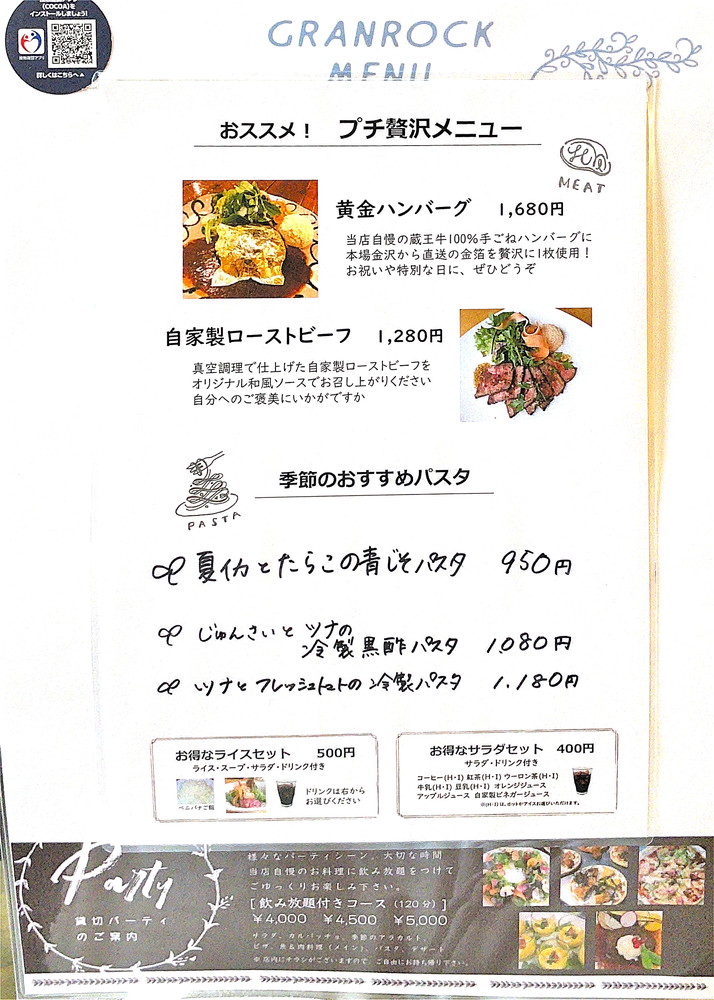 (COCOA)を
インストールしましょう!
詳しくはこちらへ▲
GRANROCK
MENU
おススメ! プチ贅沢メニュー
MEAT
黄金ハンバーグ 1,680円
当店自慢の蔵王牛100%手ごねハンバーグに
本場金沢から直送の金箔を贅沢に1枚使用!
お祝いや特別な日に、ぜひどうぞ
自家製ローストビーフ 1,280円
真空調理で仕上げた自家製ローストビーフを
オリジナル和風ソースでお召し上がりください
自分へのご褒美にいかがですか
PASTA
季節のおすすめパスタ
夏イカとたらこの青じそパスタ 950円
じゅんさいとツナの
冷製黒酢パスタ 1,080円
ツナとフレッシュトマトの冷製パスタ 1,180円
お得なライスセット 500円
ライス・スープ・サラダ・ドリンク付き
ベニバナご飯
ドリンクは右から
お選びください
お得なサラダセット 400円
サラダ・ドリンク付き
コーヒー(H・I) 紅茶(H・I) ウーロン茶(H・I)
牛乳(H・I) 豆乳(H・I) オレンジジュース
アップルジュース 自家製ビネガージュース
※(H・I)は、ホットかアイスお選びいただけます。
Party
貸切パーティ
のご案内
様々なパーティシーン、大切な時間
当店自慢のお料理に飲み放題をつけて
ごゆっくりお楽しみ下さい。
[飲み放題付きコース(120分)]
¥4,000 ¥4,500 ¥5,000
サラダ、カルパッチョ、季節のアラカルト
ピザ、魚&肉料理(メイン)、パスタ、デザート
※店内にチラシがございますので、ご自由にお持ち帰り下さい。